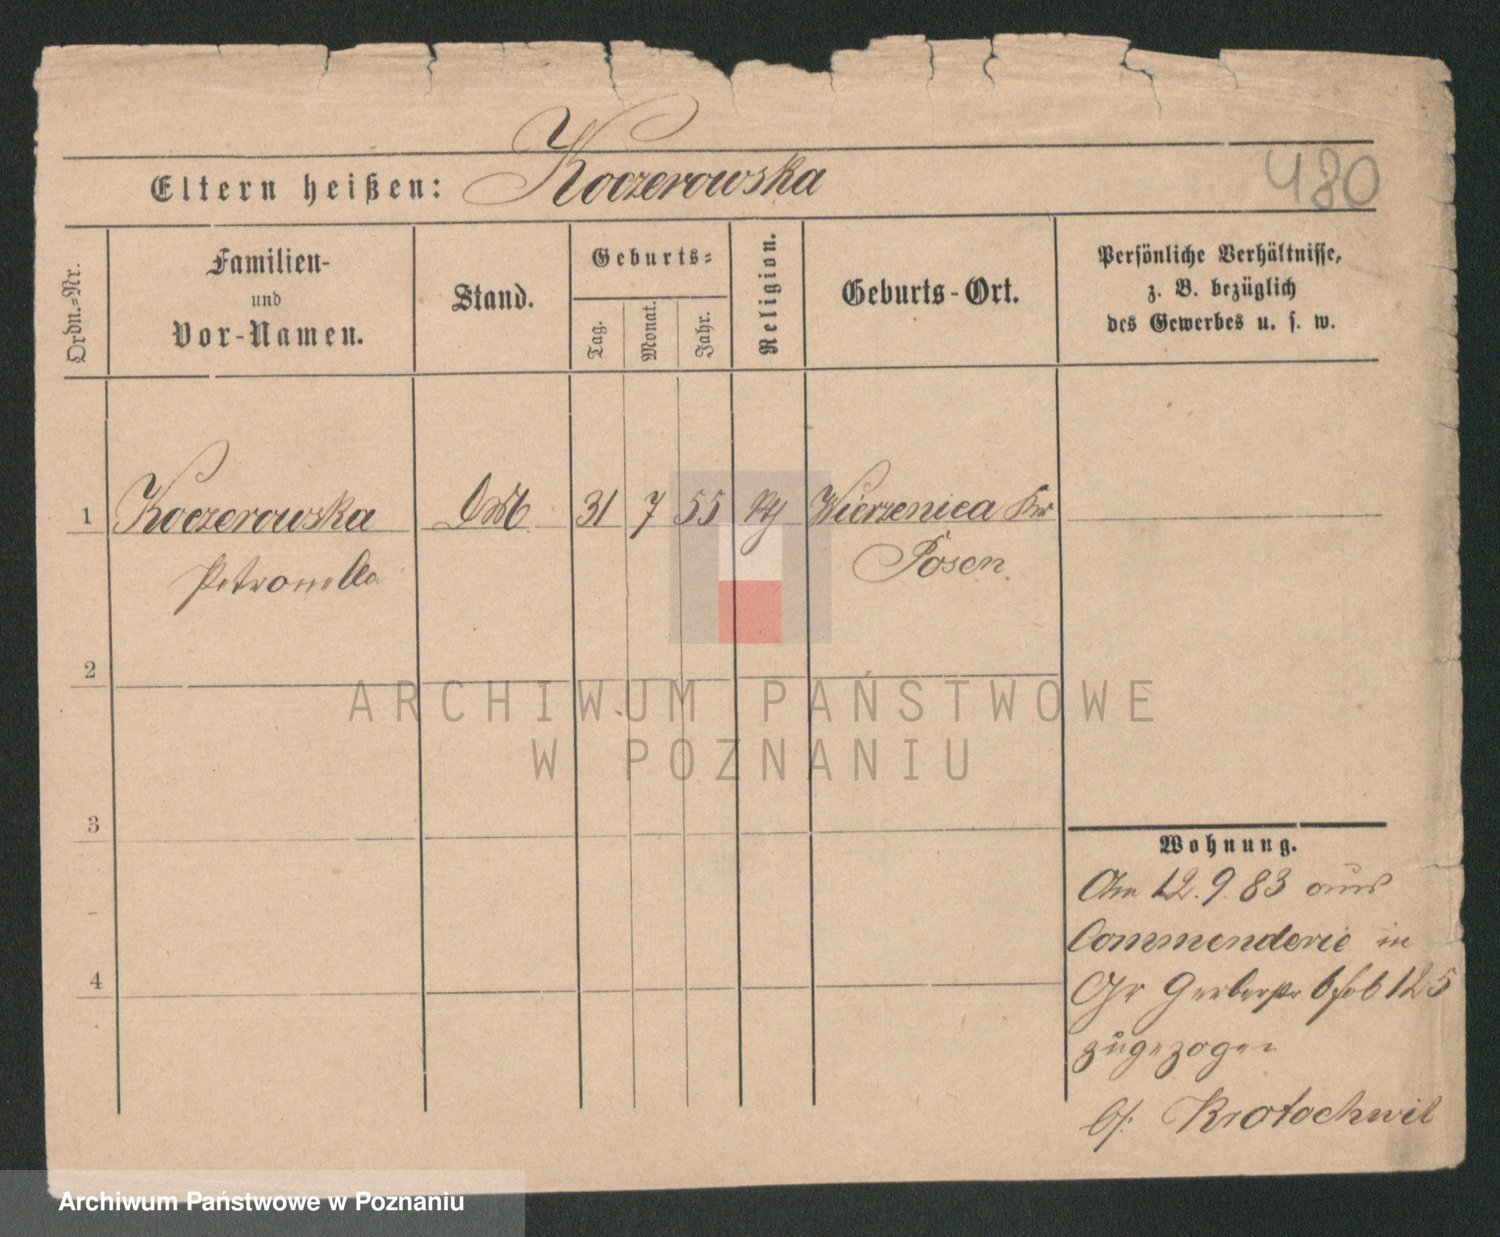 Koczerowska
Eltern heißen:
480
Ordn.=Nr.
Familien-
und
Vor-Namen.
Stand.
Geburts=
Tag.
Monat.
Jahr.
Religion.
Geburts-Ort.
Persönliche Verhältnisse,
z. B. bezüglich
des Gewerbes u. s. w.
1 Koczerowska 31 7 55 Wierzenica Kr
Petronella Posen
2
ARCHIWUM PAŃSTWOWE
W POZNANIU
3
Wohnung.
Am 12.9.83 aus
Commenderie in
4
Gr Gerberstr 125
zugezogen
b/: Krotochwil
Archiwum Państwowe w Poznaniu